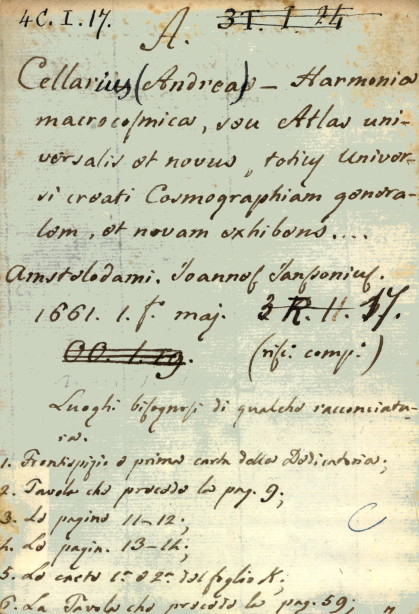 4C. I. 17.
A.
3T. I. 24
Cellarius (Andreas) – Harmonia
macrocosmica, seu Atlas uni-
versalis et novus, totius Univer-
si creati Cosmographiam genera-
lem, et novam exhibens....
Amstelodami. Joannes Janssonius.
1661. 1. f.° maj. 3 R. II. 37.
OO. I. 19. (ris: comp:)
Luoghi bisognosi di qualche racconciatu-
ra.
1. Frontispizio e prima carta della Dedicatoria;
2. Tavola che precede la pag. 9;
3. Le pagine 11–12;
4. Le pagin. 13–14;
5. Le carte 1ª e 2ª del foglio K;
6. La Tavola che precede la pag. 59;